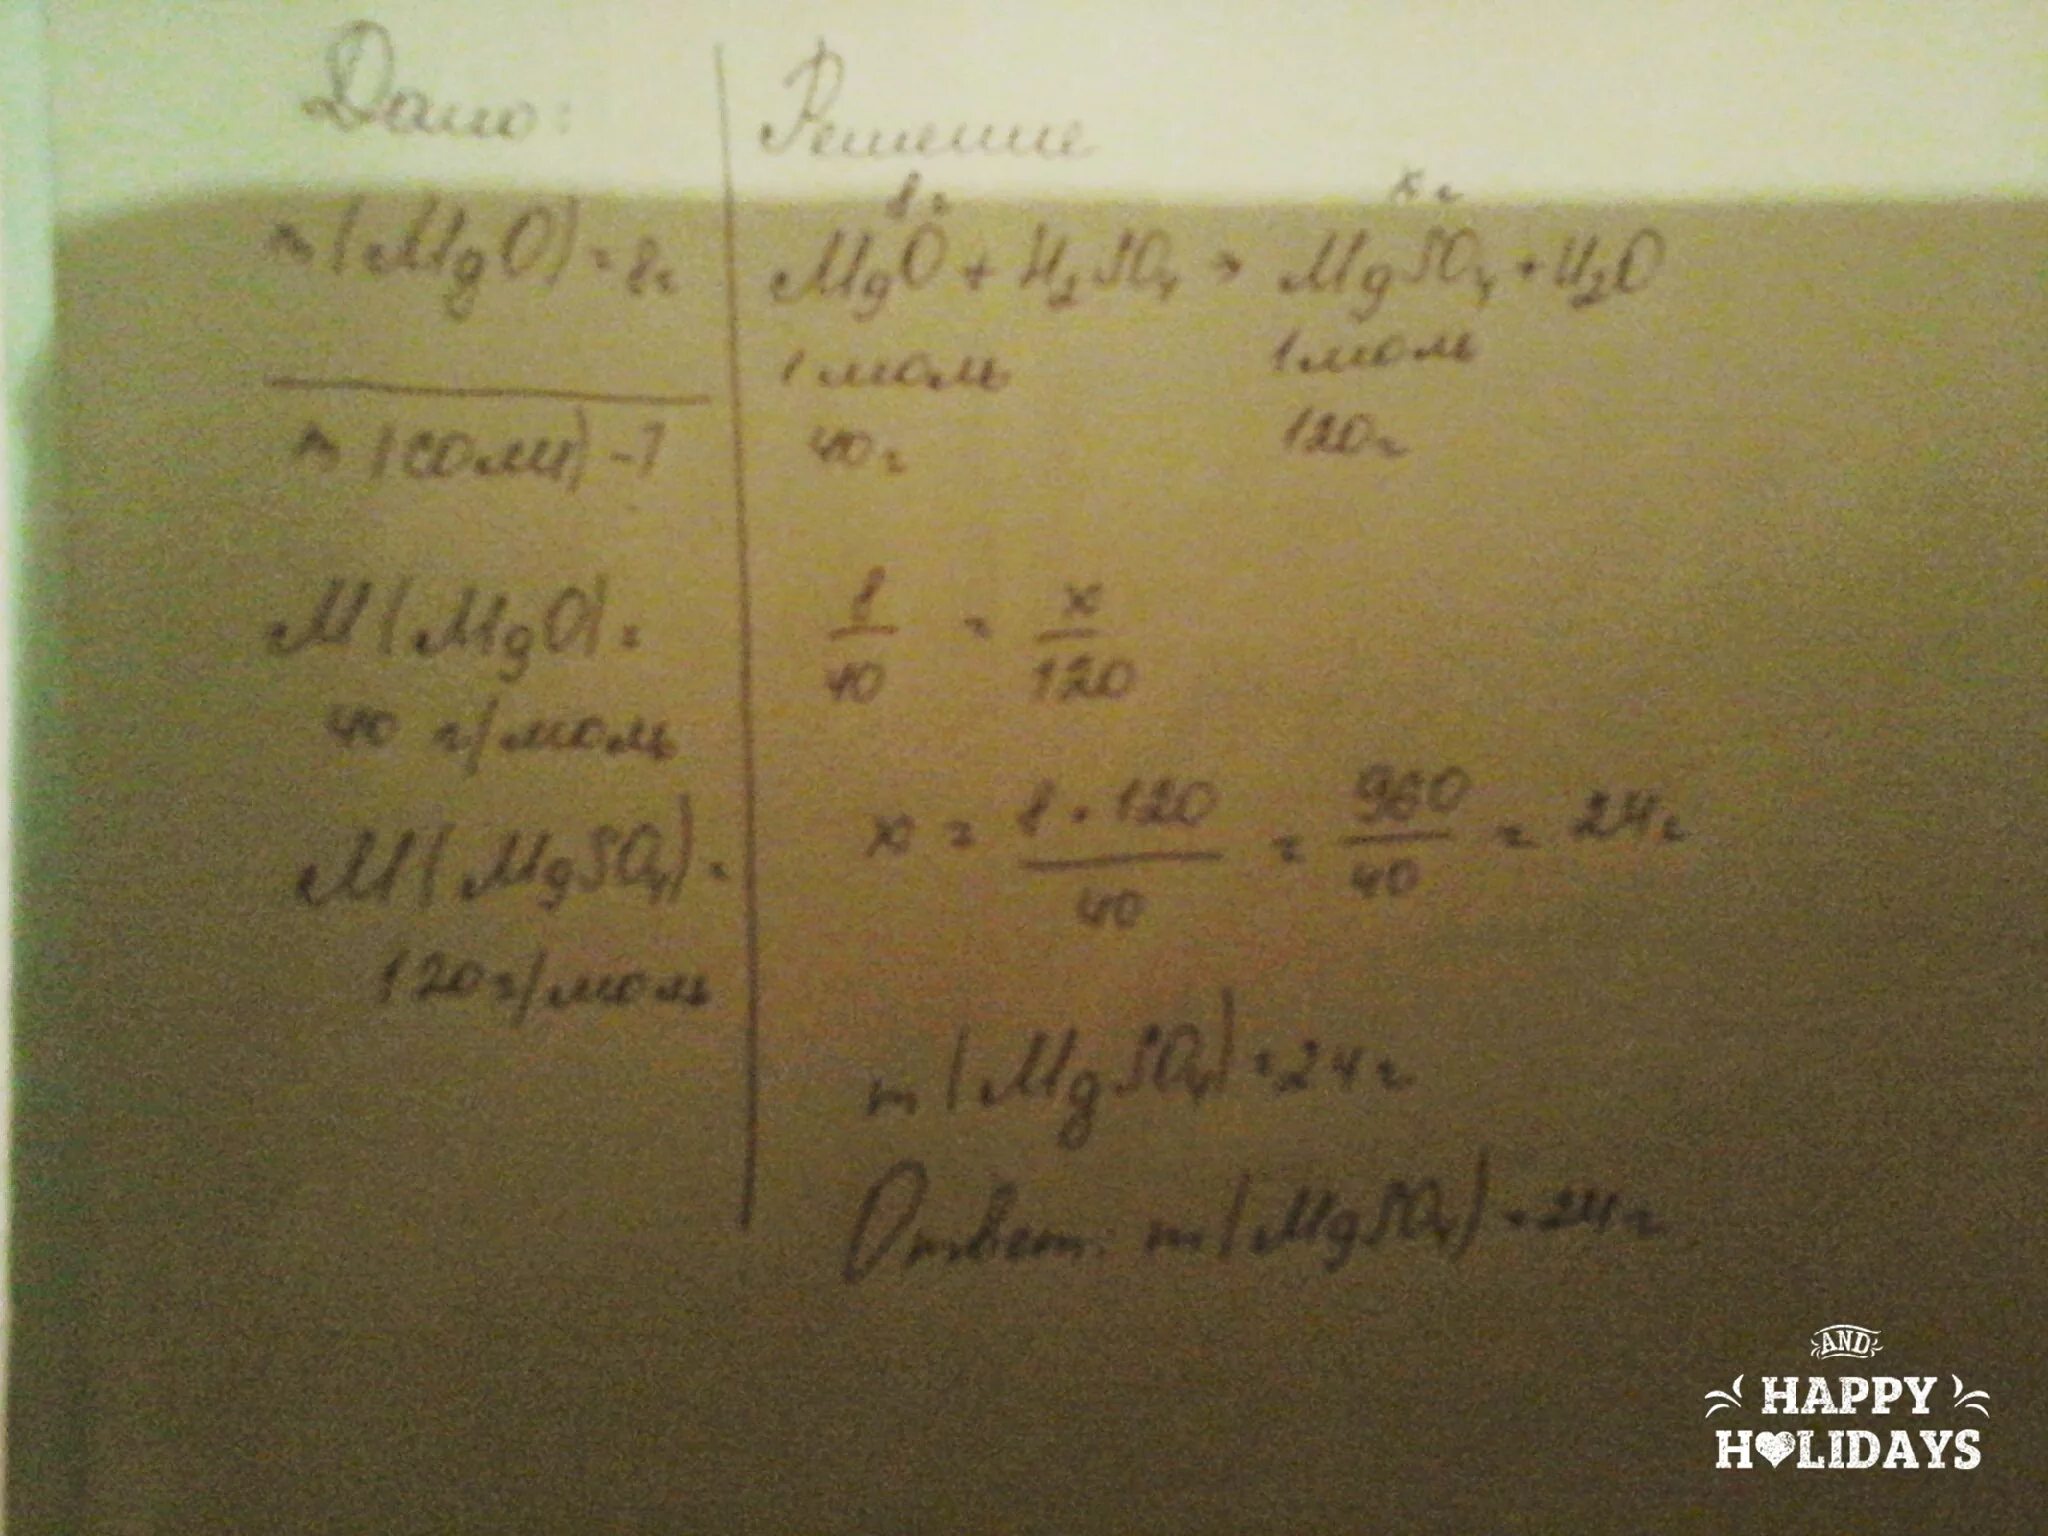 Дано:
m(MgO) = 8г
m(соли) - ?
M(MgO) =
40 г/моль
M(MgSO₄) =
120 г/моль
Решение
8г xг
MgO + H₂SO₄ → MgSO₄ + H₂O
1 моль 1 моль
40г 120г
8/40 = x/120
x = 8 · 120/40 = 960/40 = 24г
m(MgSO₄) = 24г
Ответ: m(MgSO₄) = 24г
AND
HAPPY
HOLIDAYS